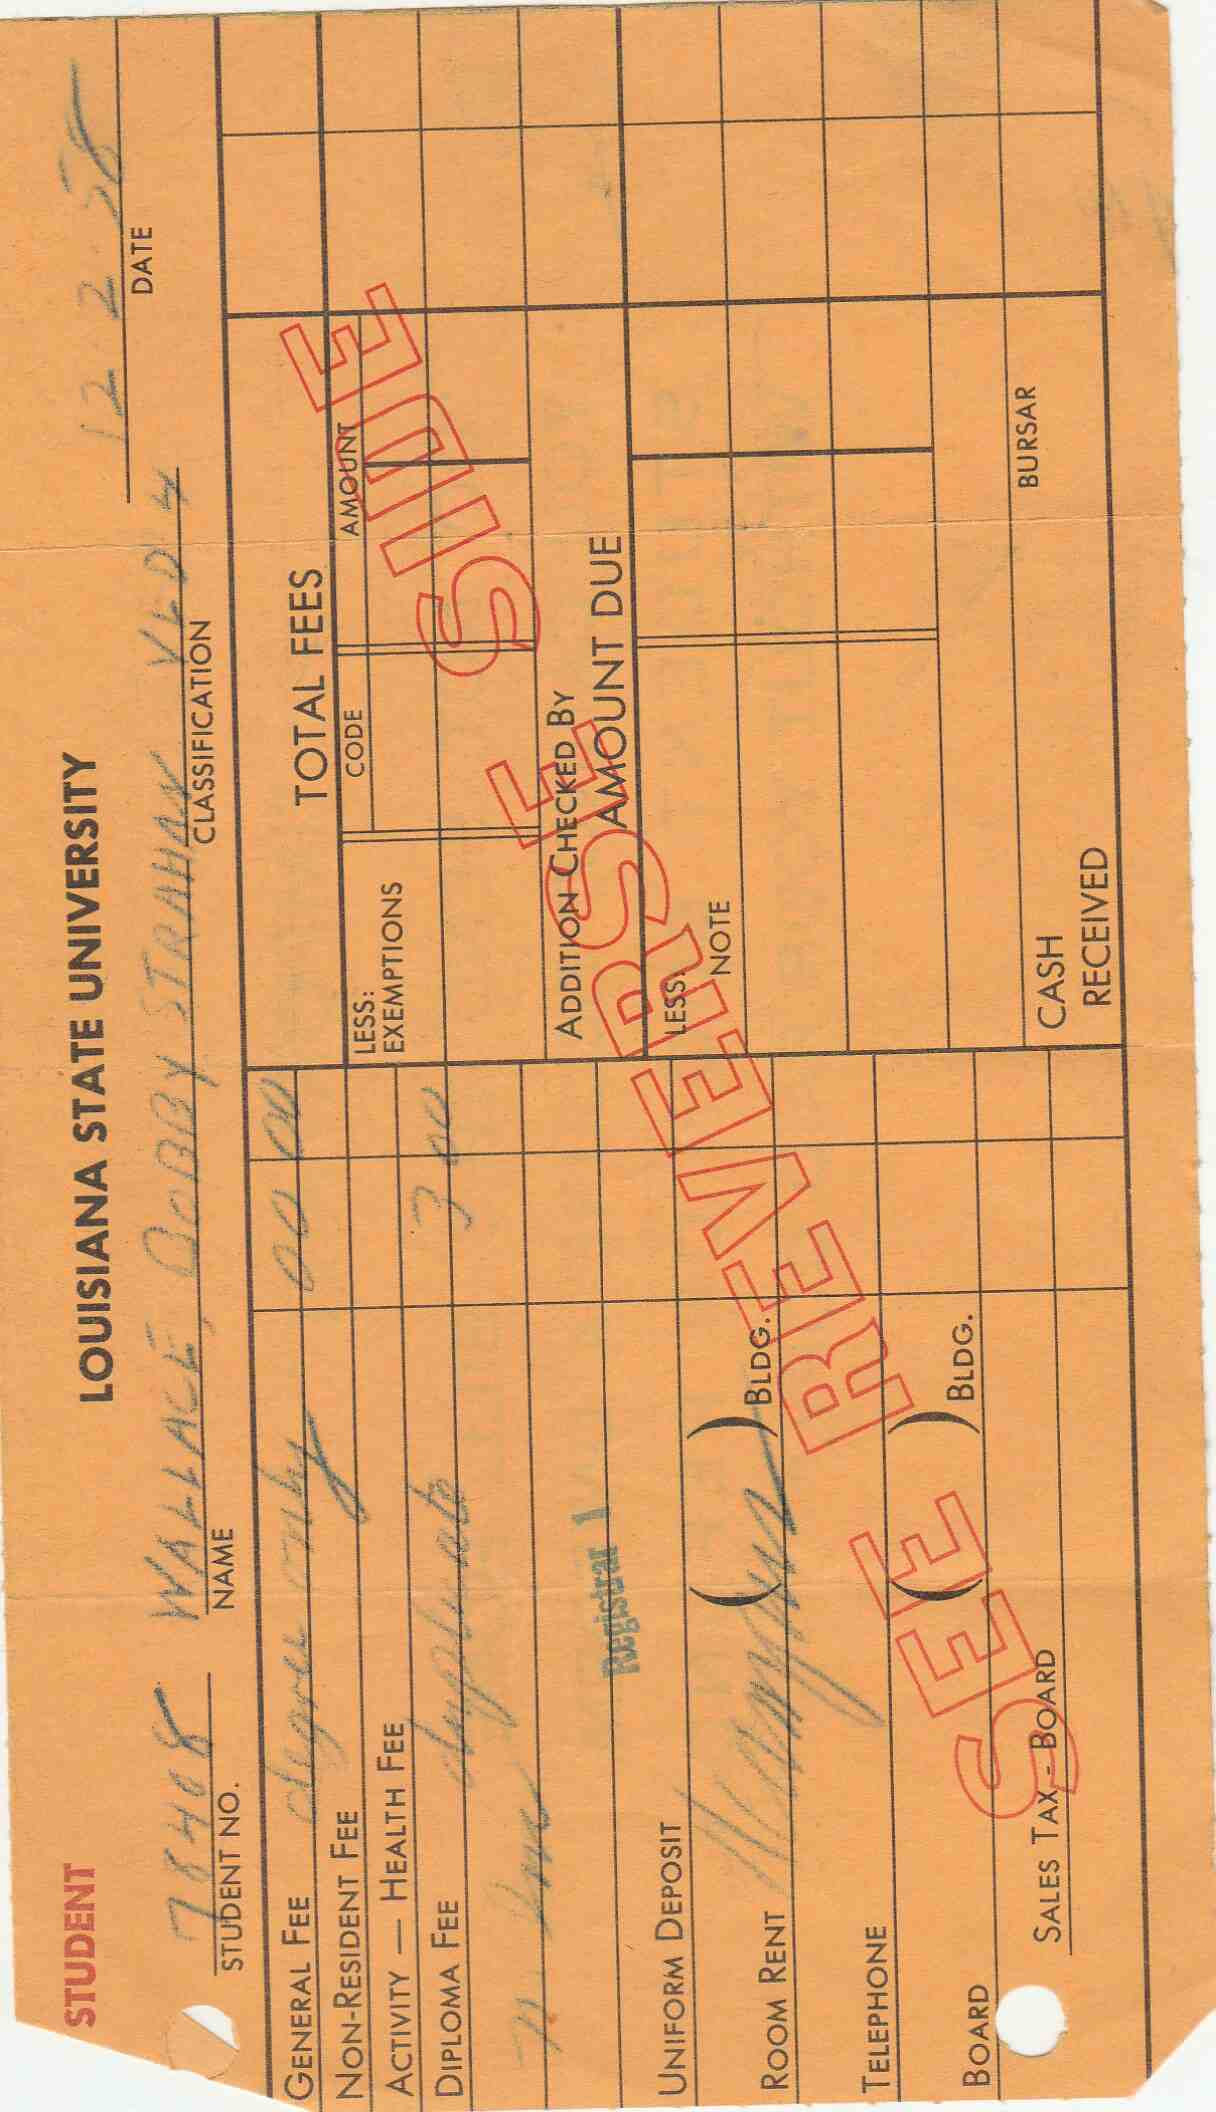 STUDENT
LOUISIANA STATE UNIVERSITY
78408 WALLACE, BOBBY STRAHAN VLD 4 12 2 58
STUDENT NO. NAME CLASSIFICATION DATE
GENERAL FEE degree only 00 00
NON-RESIDENT FEE
ACTIVITY — HEALTH FEE
DIPLOMA FEE duplicate 3 00
Registrar 1
UNIFORM DEPOSIT
ROOM RENT ( ) BLDG.
TELEPHONE
BOARD ( ) BLDG.
SALES TAX - BOARD
TOTAL FEES
LESS: EXEMPTIONS CODE AMOUNT
ADDITION CHECKED BY
AMOUNT DUE
LESS:
NOTE
CASH RECEIVED
BURSAR
SEE REVERSE SIDE